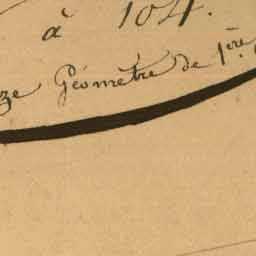 à 104.
Géomètre de 1ère